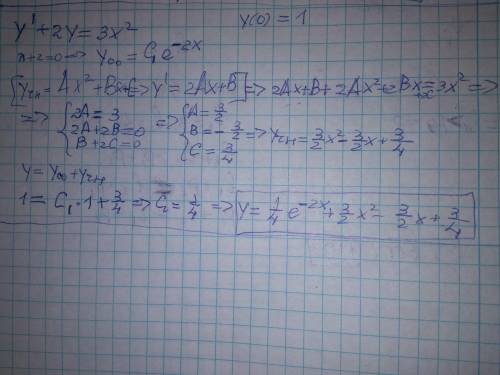 y' + 2y = 3x² y(0) = 1
x+2=0 → y₀₀ = C₁e^(-2x)
[yчн = Ax² + Bx+C => y' = 2Ax+B] => 2Ax+B+2Ax²+2Bx+2C=3x² =>
=> { 2A = 3 2A+2B=0 B+2C=0 => { A = 3/2 B = -3/2 C = 3/4 => yчн = 3/2x² - 3/2x + 3/4
y = y₀₀ + yчн
1 = C₁·1 + 3/4 => C₁ = 1/4 => y = 1/4 e^(-2x) + 3/2 x² - 3/2 x + 3/4